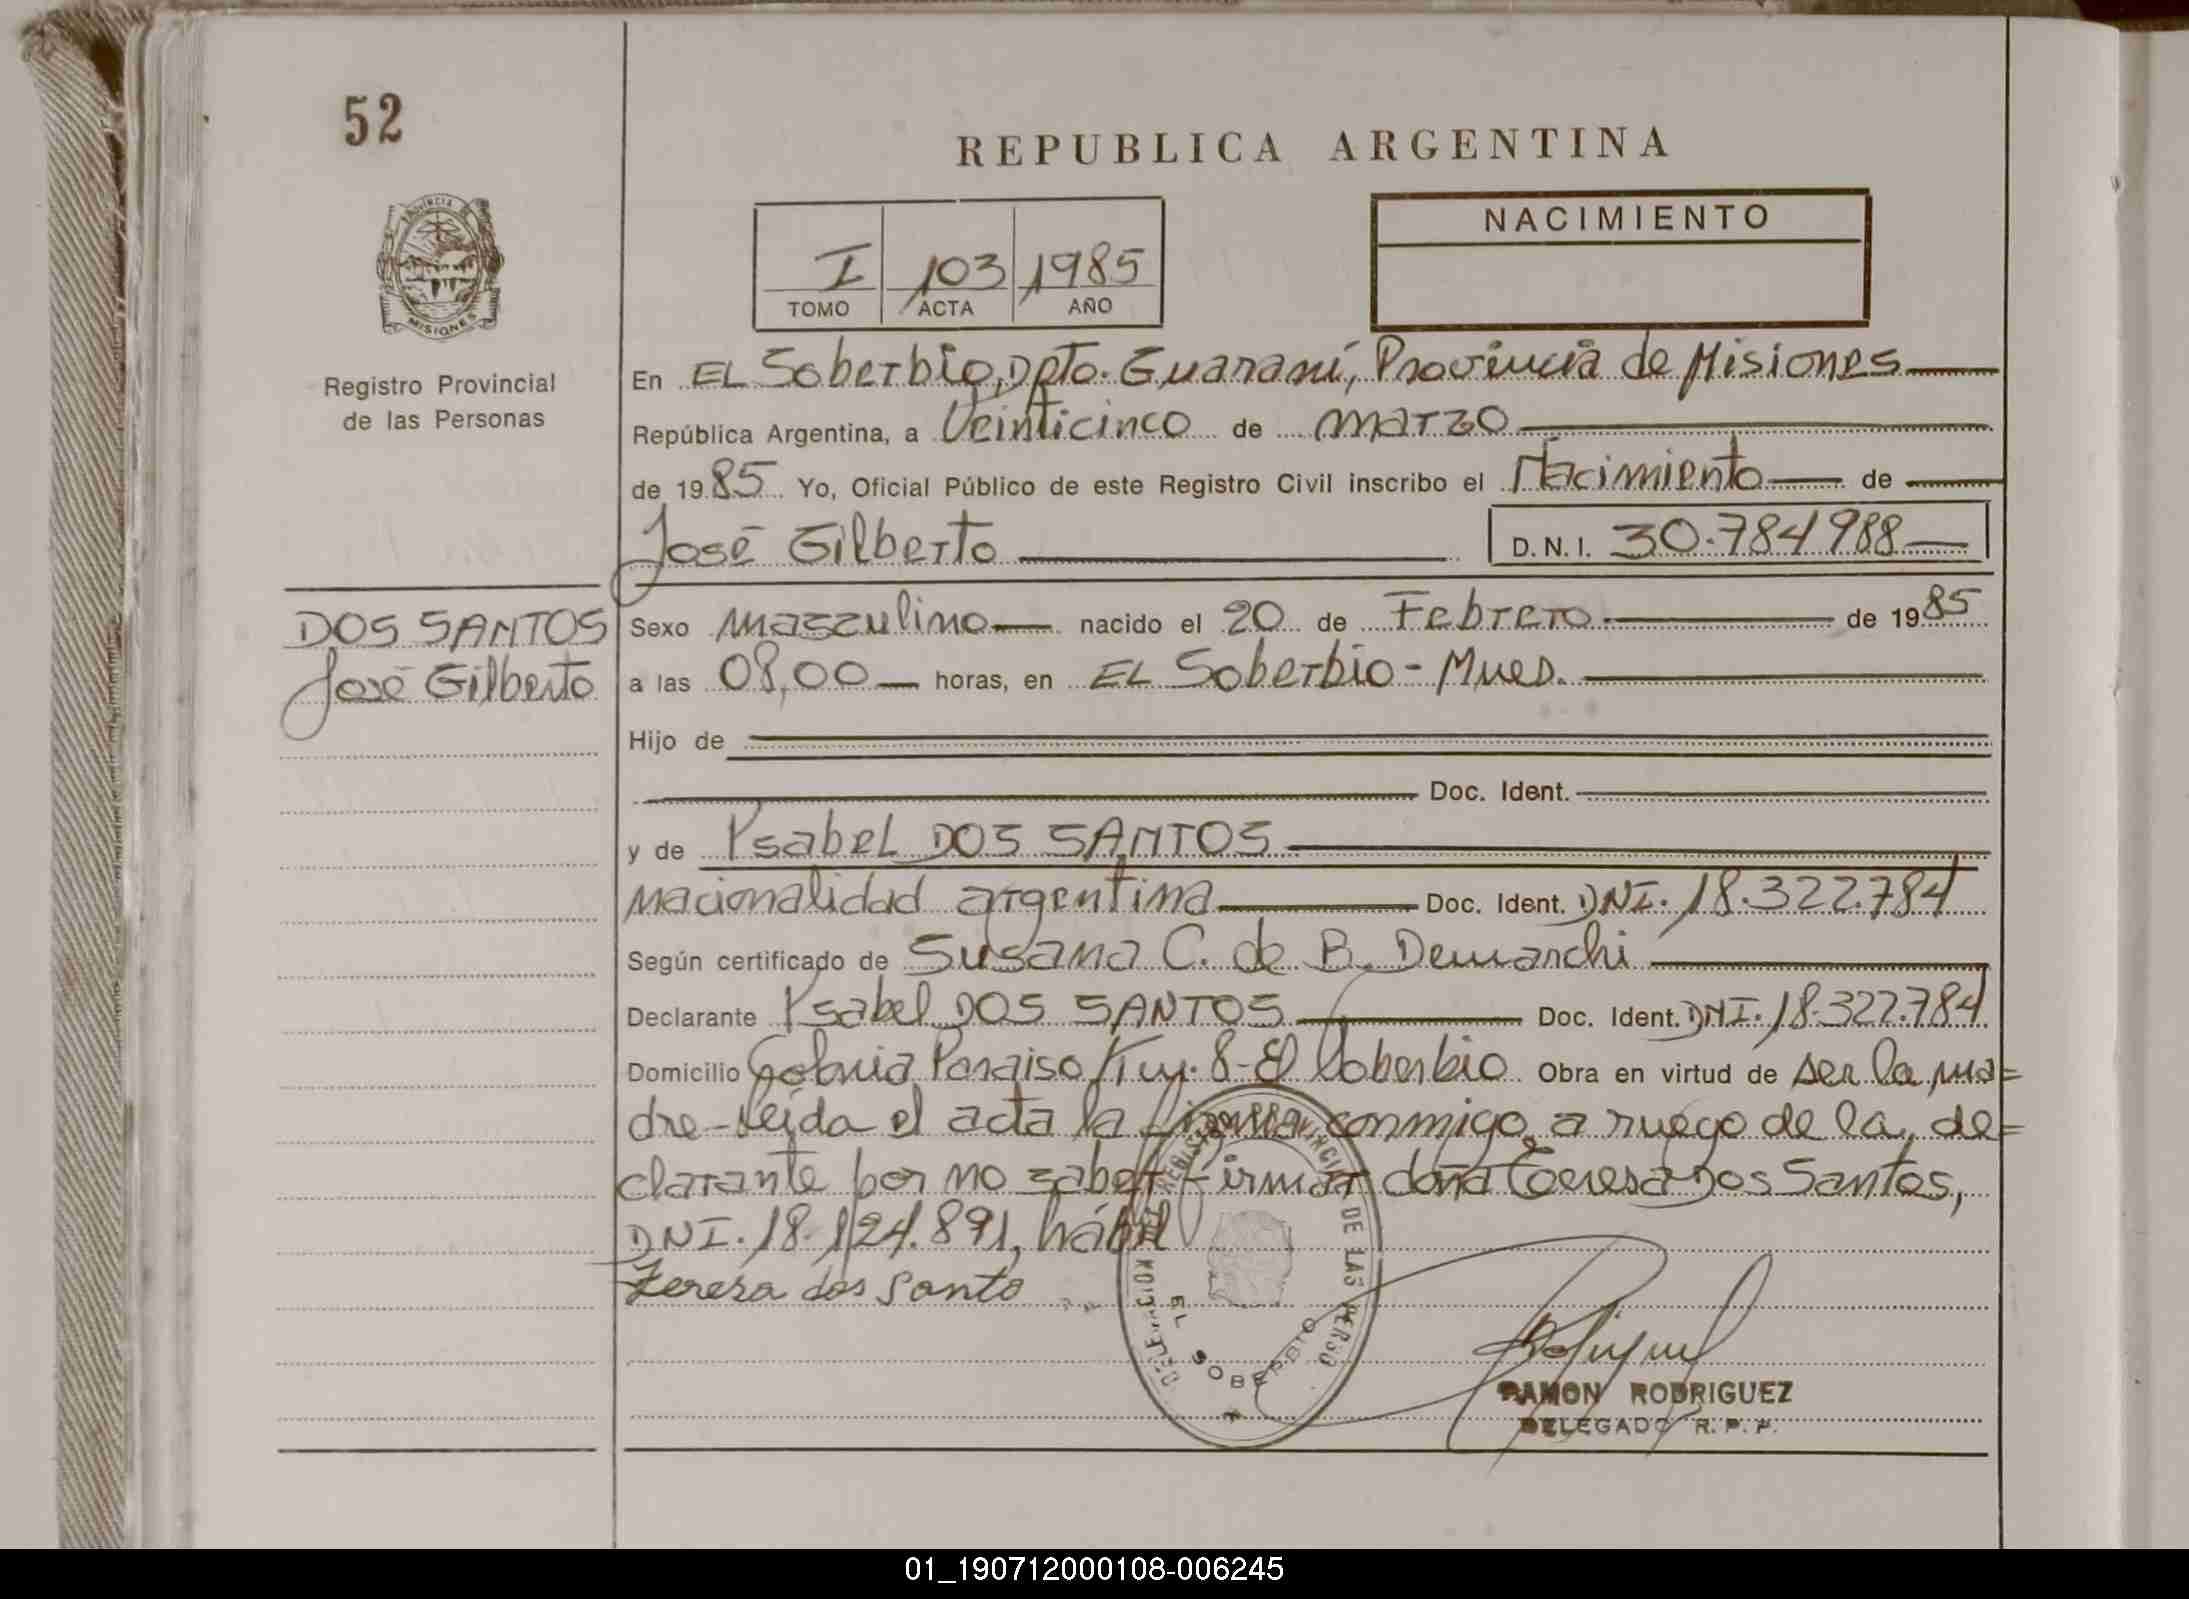 52
REPUBLICA ARGENTINA
PROVINCIA
MISIONES
Registro Provincial
de las Personas
I 103 1985
TOMO ACTA AÑO
NACIMIENTO
En EL Soberbio, Dpto. Guaraní, Provincia de Misiones
República Argentina, a Veinticinco de marzo
de 1985 Yo, Oficial Público de este Registro Civil inscribo el Nacimiento de
José Gilberto D.N.I. 30.784988
DOS SANTOS
José Gilberto
Sexo masculino nacido el 20 de Febrero de 1985
a las 08,00 horas, en EL Soberbio - Mnes.
Hijo de
Doc. Ident.
y de Ysabel DOS SANTOS
nacionalidad argentina Doc. Ident. DNI. 18.322.784
Según certificado de Susana C. de B. Demarchi
Declarante Ysabel DOS SANTOS Doc. Ident. DNI. 18.322.784
Domicilio Colonia Paraiso Km. 8 - El Soberbio Obra en virtud de ser la ma=
dre - Leída el acta la firma conmigo, a ruego de la, de=
clarante por no saber firmar doña Teresa Dos Santos,
DNI. 18.124.891, hábil
Teresa dos Santo
REGISTRO PROVINCIAL DE LAS PERSO
EL SOBERBIO
RAMON RODRIGUEZ
DELEGADO R. P. P.
01_190712000108-006245